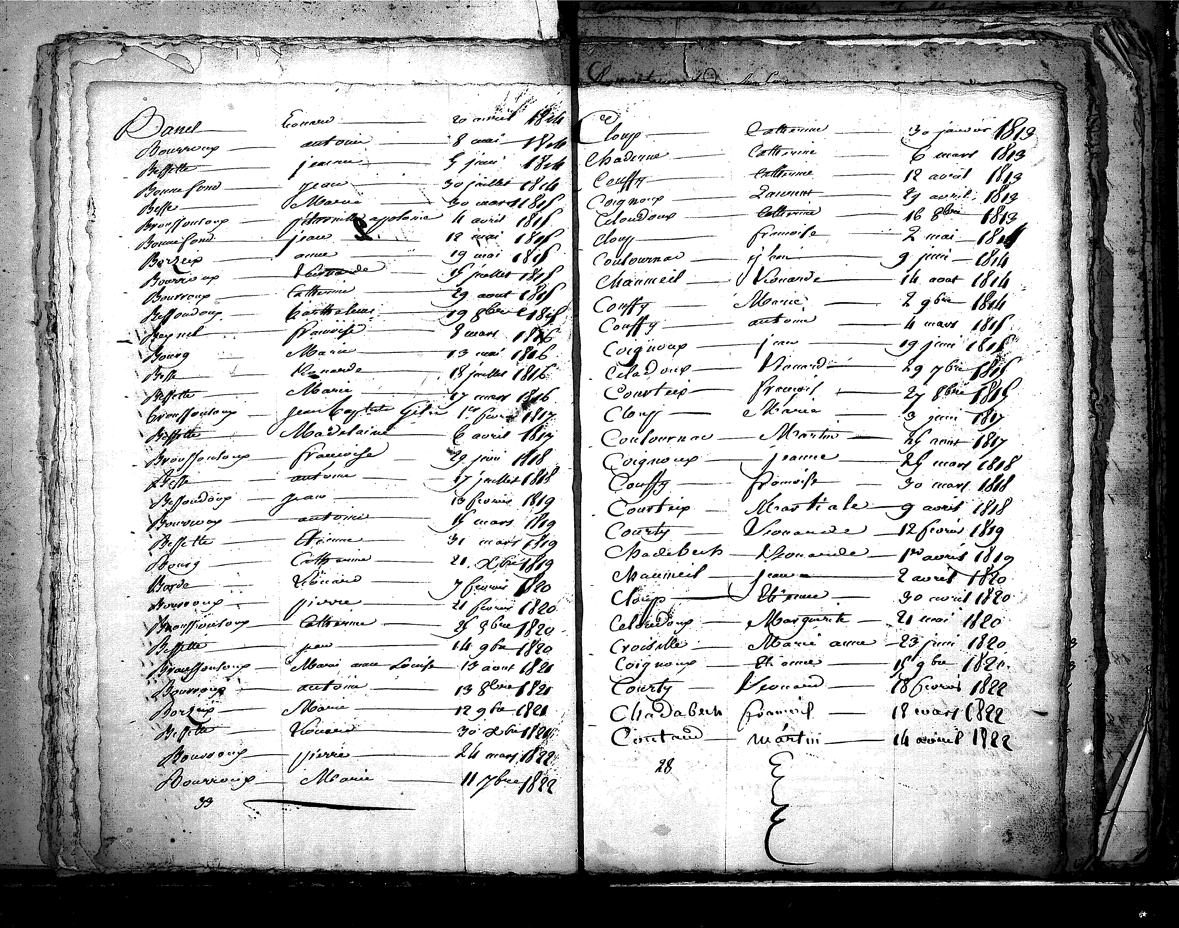 Banel Leonard 20 avril 1814
Bourroux antoine 8 mai 1814
Bessette jeanne 5 juin 1814
Bonnefond jean 30 juillet 1814
Besse Marie 30 mars 1815
Broussouloux petronille appolonie 4 avril 1815
Bonnefond jean 12 mai 1815
Borzeix anne 19 mai 1815
Bourroux Leonarde 15 juillet 1815
Bourroux Catherine 29 aout 1815
Bessoudoux 19 8bre 1815
françoise 8 mars 1816
Bourg Marie 13 mai 1816
Besse Leonarde 18 juillet 1816
Bessette Marie 17 mars 1816
Broussouloux jean Baptiste 1er fevrier 1817
Bessette Madelaine 6 avril 1817
Broussouloux françoise 29 juin 1818
Besse antoine 17 juillet 1818
Bessoudoux jean 10 fevrier 1819
Bourroux antoine 15 mars 1819
Bessette Etienne 31 mars 1819
Bourg Catherine 21 Xbre 1819
Barde Léonard 7 fevrier 1820
Bourroux pierre 21 fevrier 1820
Broussouloux Catherine 1820
Bessette jean 14 9bre 1820
Broussouloux Marie anne Louise 13 aout 1821
Bourroux antoine 13 8bre 1821
Borzeix Marie 12 9bre 1821
Bessette Léonard 30 Xbre 1821
Bourroux pierre 24 mars 1822
Bourroux Marie 11 7bre 1822
33
Cloup Catherine 30 janvier 1813
Chaderne Catherine 6 mars 1813
Couffy Catherine 12 avril 1813
Coignoux Laurent 29 avril 1813
Celoudoux Catherine 16 8bre 1813
Cloup françoise 2 mai 1814
Coulournac jean 9 juin 1814
Chaumeil Léonarde 14 aout 1814
Couffy Marie 2 9bre 1814
Couffy antoine 4 mars 1815
Coignoux jean 19 juin 1815
Celadoux Léonard 29 7bre 1815
Courteix françois 27 8bre 1815
Cloup Marie 3 juin 1817
Coulournac Martin 25 aout 1817
Coignoux jeanne 25 mars 1818
Couffy françoise 30 mars 1818
Courteix Martiale 9 avril 1818
Courty Leonarde 12 fevrier 1819
Chadebech Léonarde 1er avril 1819
Chaumeil jean 2 avril 1820
Cloup Etienne 30 avril 1820
Celoudoux Marguerite 21 mai 1820
Croiselle Marie anne 23 juin 1820
Coignoux Etienne 15 9bre 1820
Courty Léonard 18 fevrier 1822
Chadabech françois 18 mars 1822
Coutaud martin 14 avril 1822
28